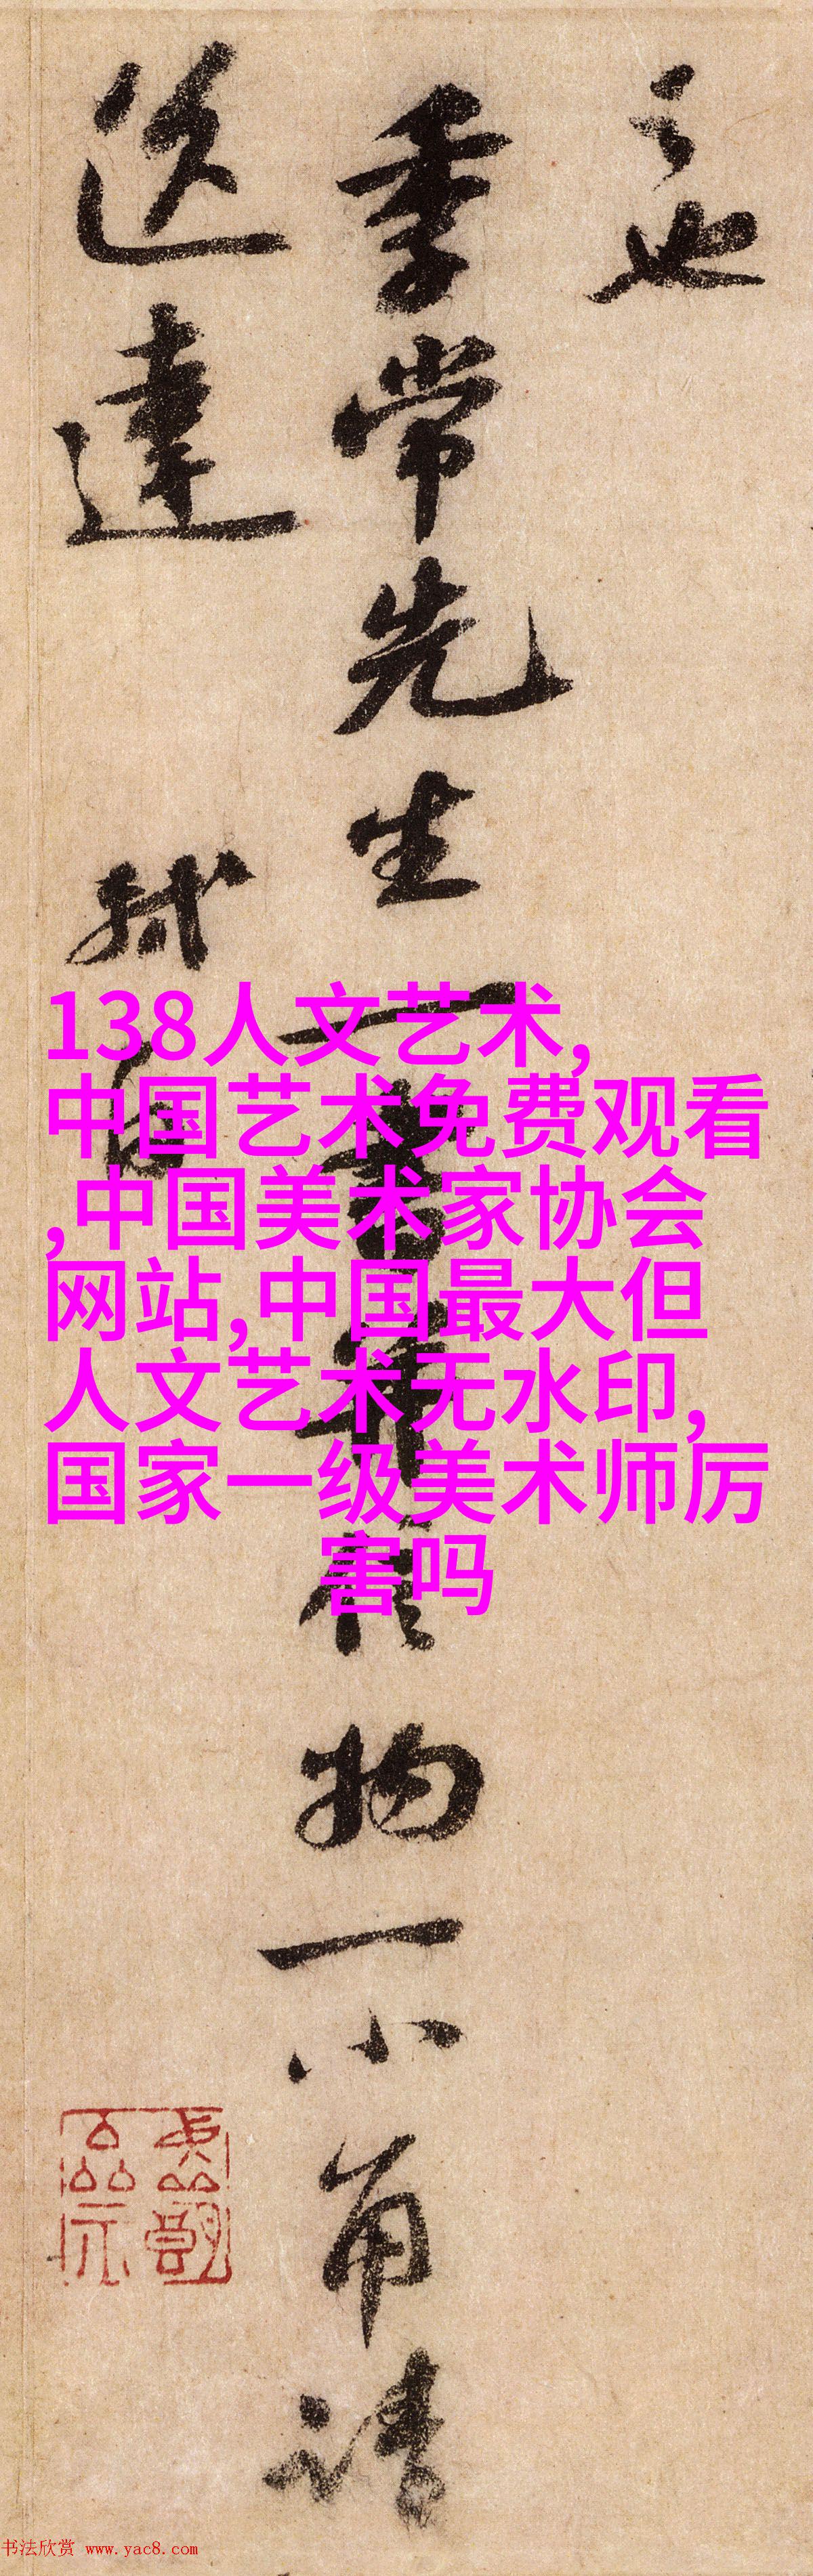 之也
季常先生一書并信物一小角請
送達 軾白
138人文艺术,
中国艺术免费观看
,中国美术家协会
网站,中国最大但
人文艺术无水印,
国家一级美术师厉
害吗
书法欣赏 www.yac8.com